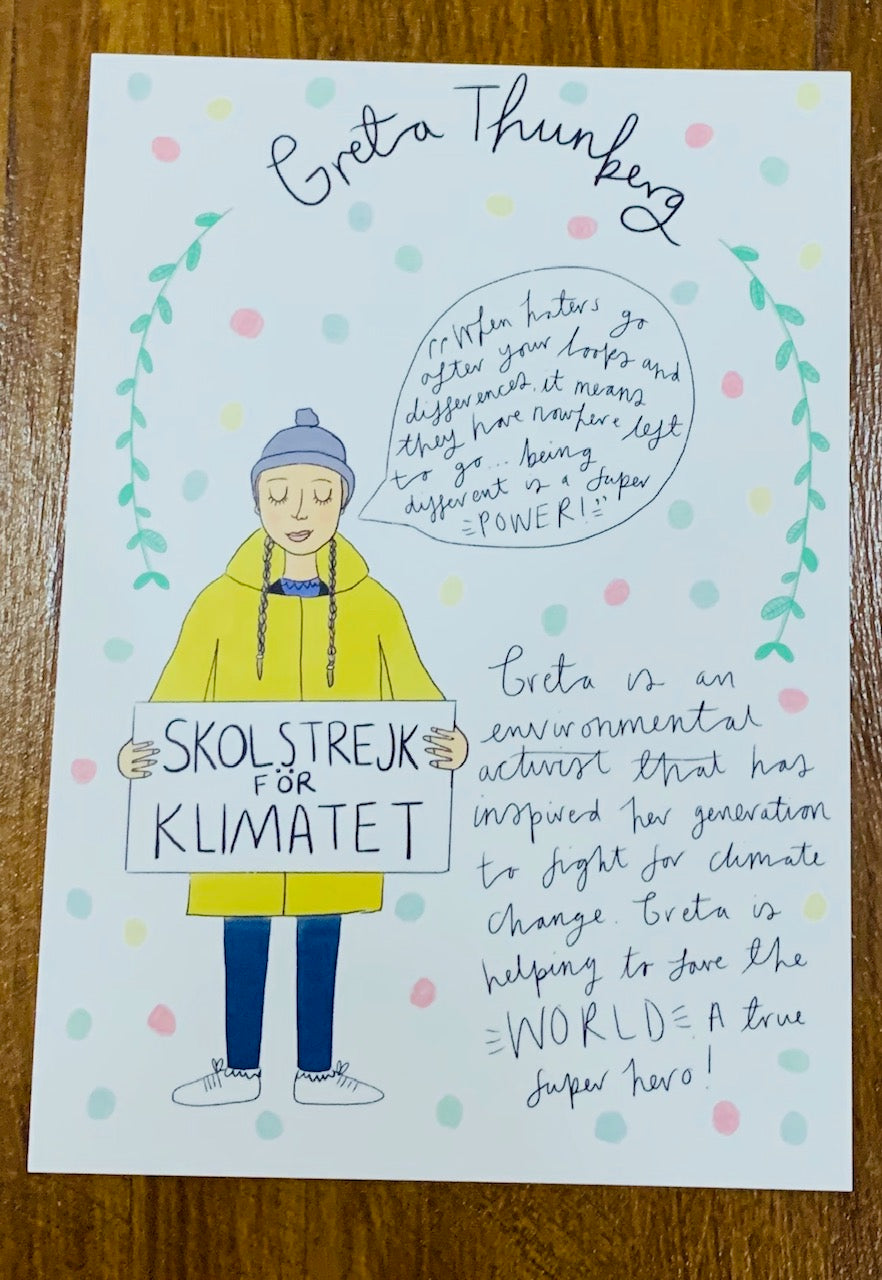 Greta Thunberg
"When haters go
after your looks and
differences, it means
they have nowhere left
to go... being
different is a super
POWER!"
SKOLSTREJK
FÖR
KLIMATET
Greta is an
environmental
activist that has
inspired her generation
to fight for climate
change. Greta is
helping to save the
WORLD. A true
super hero!